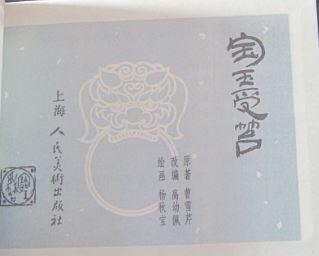 宝玉受笞
原著 曹雪芹
改编 高幼佩
绘画 杨秋宝
上海人民美術出版社